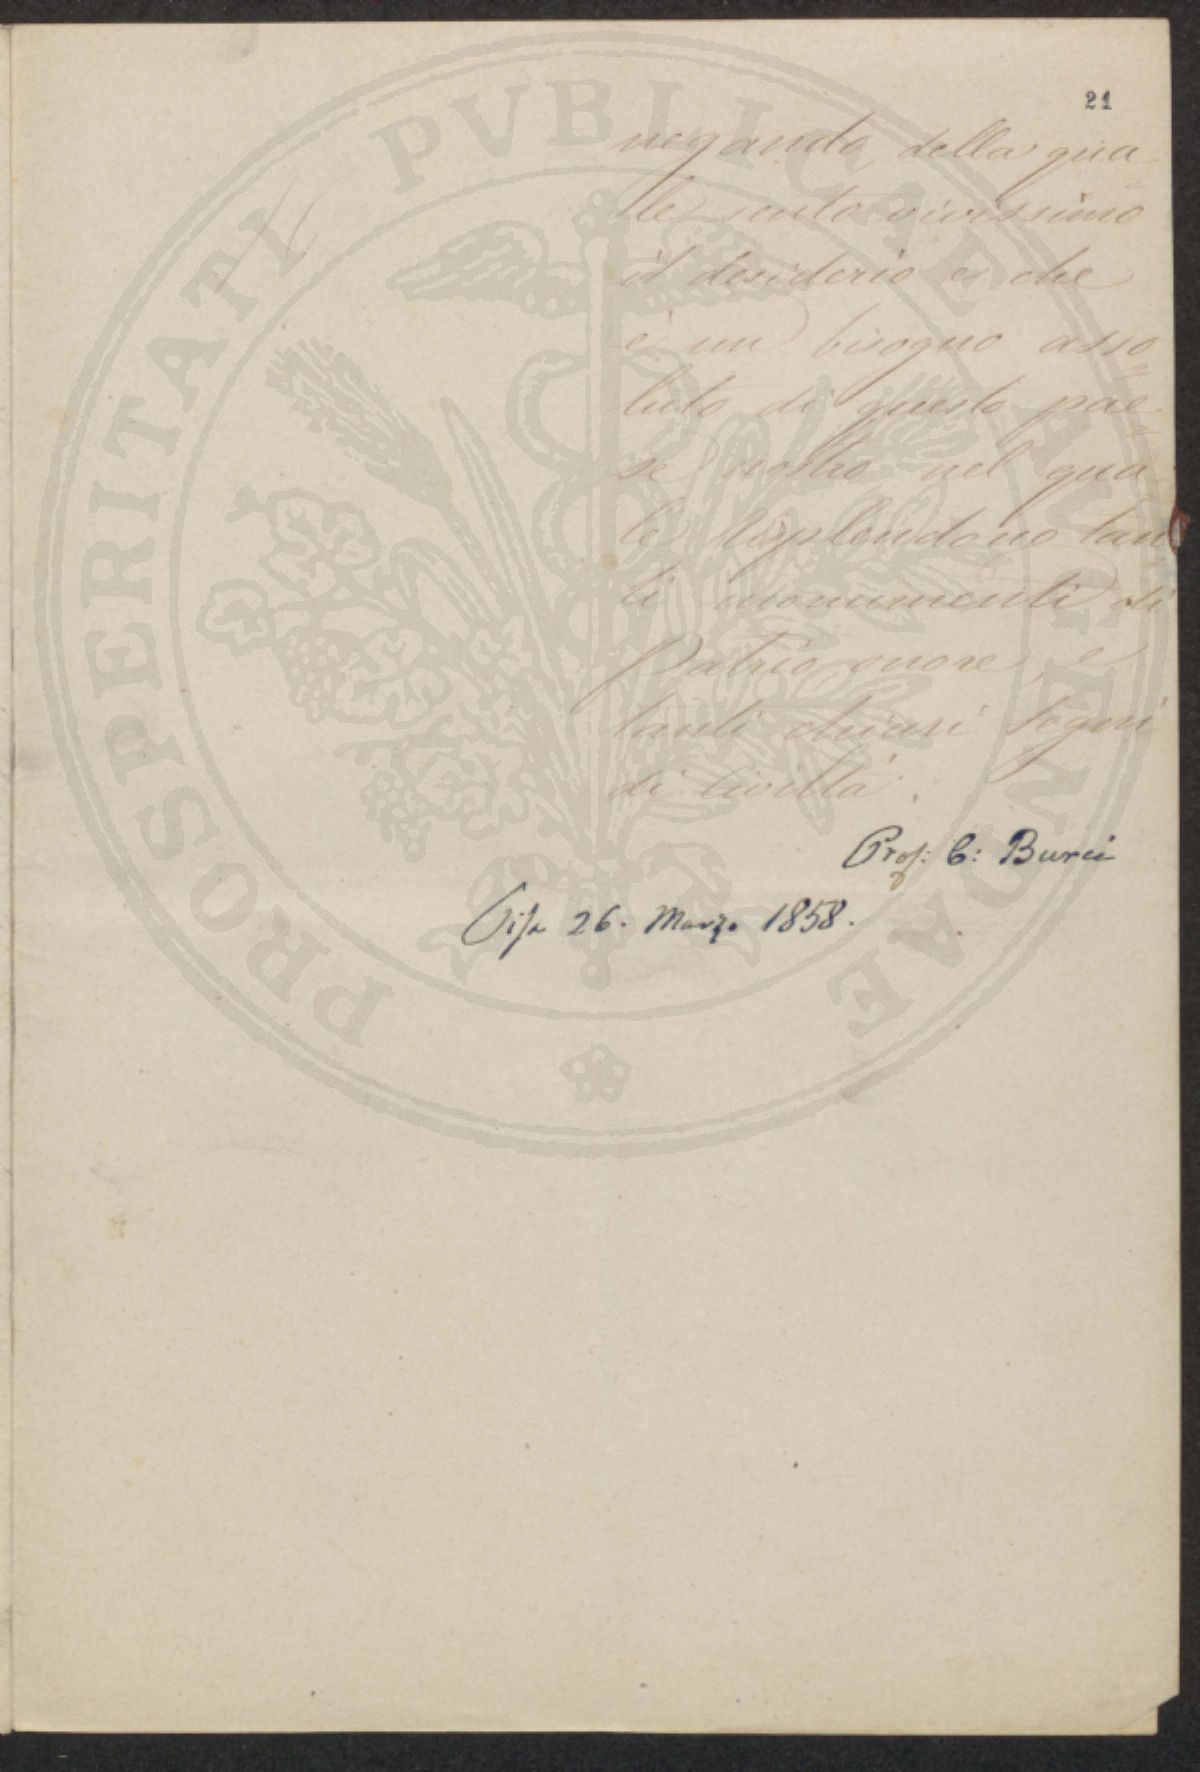 21
negando, della qua
le sento vivissimo
il desiderio e che
è un bisogno asso
luto di questo pae
se nostro nel qua
le risplendono tan
ti monumenti di
Patrio onore, e
tanti chiari segni
di Civiltà.
Prof: C: Burci
Pisa 26. Marzo 1858.
PROSPERITATI PVBLICAE AVGENDAE